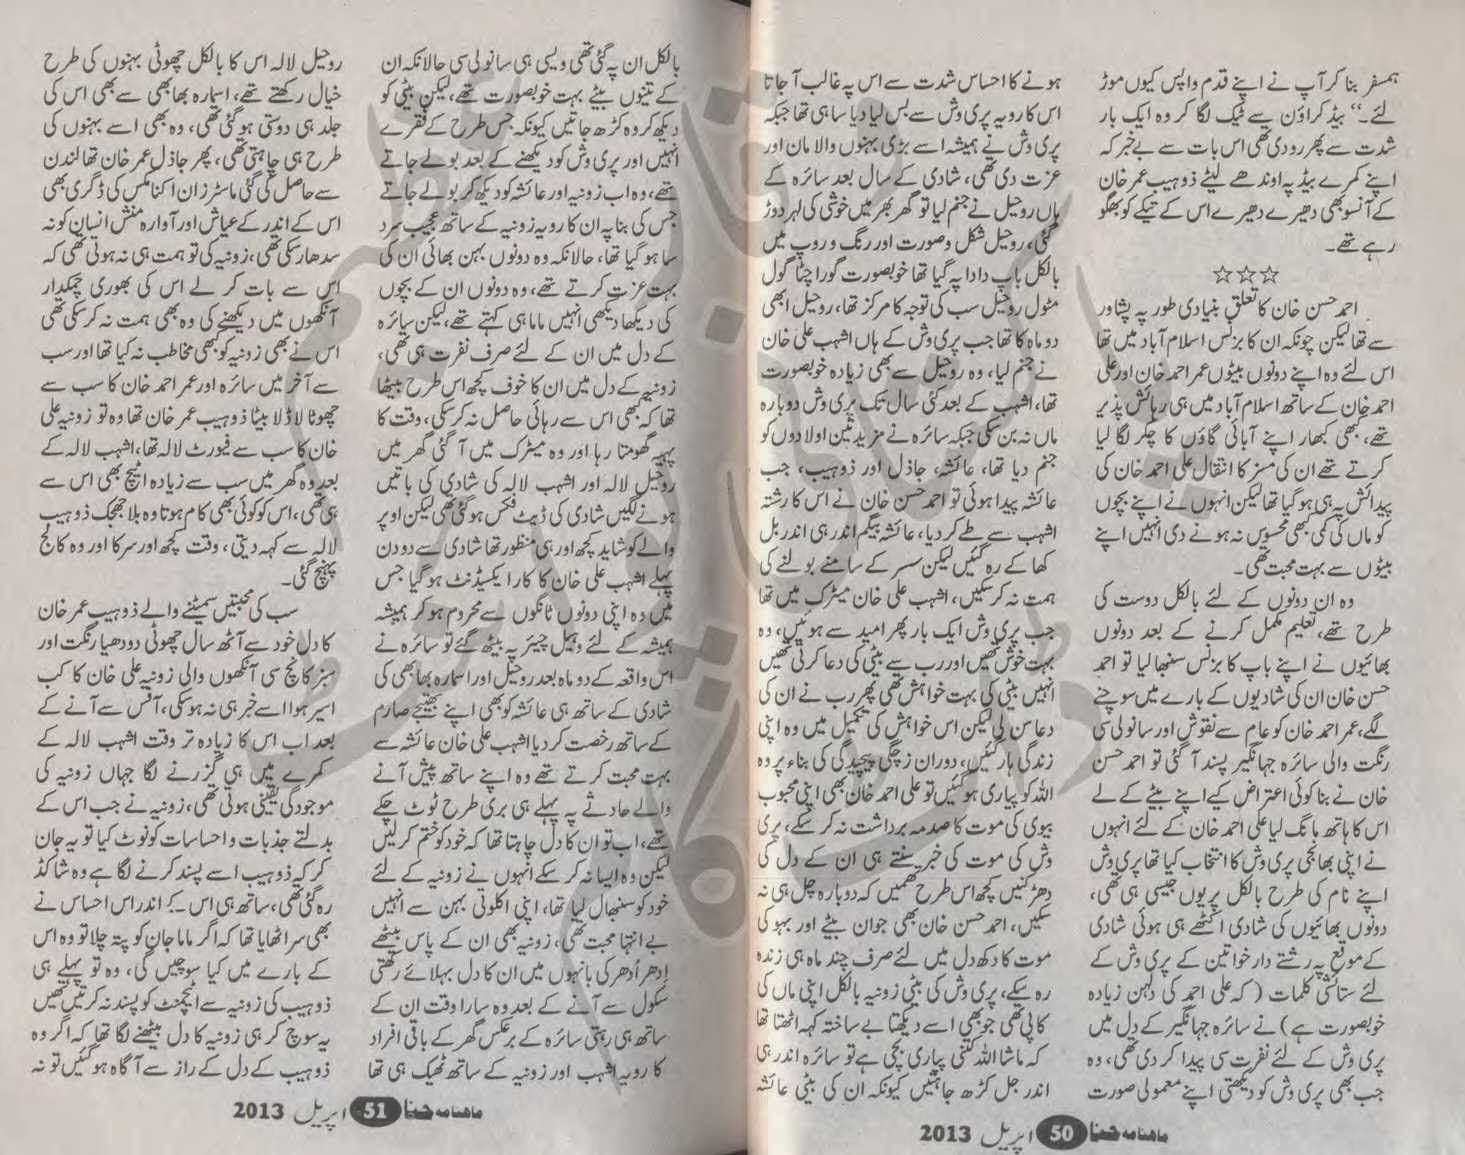 ہمسفر بنا کر آپ نے اپنے قدم واپس کیوں موڑ
لئے۔“ بیڈ کراؤن سے ٹیک لگا کر وہ ایک بار
شدت سے پھر رو دی تھی اس بات سے بے خبر کہ
اپنے کمرے بیڈ پہ اوندھے لیٹے ذوہیب عمر خان
کے آنسو بھی دھیرے دھیرے اس کے تکیے کو بھگو
رہے تھے۔
☆☆☆
احمد حسن خان کا تعلق بنیادی طور پہ پشاور
سے تھا لیکن چونکہ ان کا بزنس اسلام آباد میں تھا
اس لئے وہ اپنے دونوں بیٹوں عمر احمد خان اور علی
احمد خان کے ساتھ اسلام آباد میں ہی رہائش پذیر
تھے، کبھی کبھار اپنے آبائی گاؤں کا چکر لگا لیا
کرتے تھے ان کی مسز کا انتقال علی احمد خان کی
پیدائش پہ ہی ہو گیا تھا لیکن انہوں نے اپنے بچوں
کو ماں کی کمی کبھی محسوس نہ ہونے دی انہیں اپنے
بیٹوں سے بہت محبت تھی۔
وہ ان دونوں کے لئے بالکل دوست کی
طرح تھے، تعلیم مکمل کرنے کے بعد دونوں
بھائیوں نے اپنے باپ کا بزنس سنبھالا تو احمد
حسن خان ان کی شادیوں کے بارے میں سوچنے
لگے، عمر احمد خان کو عام سے نقوش اور سانولی سی
رنگت والی سائرہ جہانگیر پسند آ گئی تو احمد حسن
خان نے بنا کوئی اعتراض کیے اپنے بیٹے کے لے
اس کا ہاتھ مانگ لیا علی احمد خان کے لئے انہوں
نے اپنی بھانجی پری وش کا انتخاب کیا تھا پری وش
اپنے نام کی طرح بالکل پریوں جیسی ہی تھی،
دونوں بھائیوں کی شادی اکٹھے ہی ہوئی شادی
کے موقع پہ رشتے دار خواتین کے پری وش کے
لئے ستائشی کلمات (کہ علی احمد کی دلہن زیادہ
خوبصورت ہے) نے سائرہ جہانگیر کے دل میں
پری وش کے لئے نفرت سی پیدا کر دی تھی، وہ
جب بھی پری وش کو دیکھتی اپنے معمولی صورت
ہونے کا احساس شدت سے اس پہ غالب آ جاتا
اس کا رویہ پری وش سے بس لیا دیا سا ہی تھا جبکہ
پری وش نے ہمیشہ اسے بڑی بہنوں والا مان اور
عزت دی تھی، شادی کے سال بعد سائرہ کے
ہاں روحیل نے جنم لیا تو گھر بھر میں خوشی کی لہر دوڑ
گئی، روحیل شکل و صورت اور رنگ و روپ میں
بالکل باپ دادا پہ گیا تھا خوبصورت گورا چٹا گول
مٹول روحیل سب کی توجہ کا مرکز تھا، روحیل ابھی
دو ماہ کا تھا جب پری وش کے ہاں اشہب علی خان
نے جنم لیا، وہ روحیل سے بھی زیادہ خوبصورت
تھا، اشہب کے بعد کئی سال تک پری وش دوبارہ
ماں نہ بن سکی جبکہ سائرہ نے مزید تین اولادوں کو
جنم دیا تھا، عائشہ، جاذل اور ذوہیب، جب
عائشہ پیدا ہوئی تو احمد حسن خان نے اس کا رشتہ
اشہب سے طے کر دیا، عائشہ بیگم اندر ہی اندر بل
کھا کے رہ گئیں لیکن سسر کے سامنے بولنے کی
ہمت نہ کر سکیں، اشہب علی خان میٹرک میں تھا
جب پری وش ایک بار پھر امید سے ہوئیں، وہ
بہت خوش تھیں اور رب سے بیٹی کی دعا کرتی تھیں
انہیں بیٹی کی بہت خواہش تھی پھر رب نے ان کی
دعا سن لی لیکن اس خواہش کی تکمیل میں وہ اپنی
زندگی ہار گئیں، دوران زچگی پیچیدگی کی بناء پر وہ
اللہ کو پیاری ہو گئیں تو علی احمد خان بھی اپنی محبوب
بیوی کی موت کا صدمہ برداشت نہ کر سکے، پری
وش کی موت کی خبر سنتے ہی ان کے دل کی
دھڑکنیں کچھ اس طرح تھمیں کہ دوبارہ چل ہی نہ
سکیں، احمد حسن خان بھی جوان بیٹے اور بہو کی
موت کا دکھ دل میں لئے صرف چند ماہ ہی زندہ
رہ سکے، پری وش کی بیٹی زونیہ بالکل اپنی ماں کی
کاپی تھی جو بھی اسے دیکھتا بے ساختہ کہہ اٹھتا تھا
کہ ماشا اللہ کتنی پیاری بچی ہے تو سائرہ اندر ہی
اندر جل کڑھ جاتیں کیونکہ ان کی بیٹی عائشہ
ماہنامہ حنا 50 اپریل 2013
بالکل ان پہ گئی تھی ویسی ہی سانولی سی حالانکہ ان
کے تینوں بیٹے بہت خوبصورت تھے، لیکن بیٹی کو
دیکھ کر وہ کڑھ جاتیں کیونکہ جس طرح کے فقرے
انہیں اور پری وش کو دیکھنے کے بعد بولے جاتے
تھے، وہ اب زونیہ اور عائشہ کو دیکھ کر بولے جاتے
جس کی بنا پہ ان کا رویہ زونیہ کے ساتھ عجیب سرد
سا ہو گیا تھا، حالانکہ وہ دونوں بہن بھائی ان کی
بہت عزت کرتے تھے، وہ دونوں ان کے بچوں
کی دیکھا دیکھی انہیں ماما ہی کہتے تھے، لیکن سائرہ
کے دل میں ان کے لئے صرف نفرت ہی تھی،
زونیہ کے دل میں ان کا خوف کچھ اس طرح بیٹھا
تھا کہ کبھی اس سے رہائی حاصل نہ کر سکی، وقت کا
پہیہ گھومتا رہا اور وہ میٹرک میں آ گئی گھر میں
روحیل لالہ اور اشہب لالہ کی شادی کی باتیں
ہونے لگیں شادی کی ڈیٹ فکس ہو گئی تھی لیکن اوپر
والے کو شاید کچھ اور ہی منظور تھا شادی سے دو دن
پہلے اشہب علی خان کا کار ایکسیڈنٹ ہو گیا جس
میں وہ اپنی دونوں ٹانگوں سے محروم ہو کر ہمیشہ
ہمیشہ کے لئے وہیل چیئر پہ بیٹھ گئے تو سائرہ نے
اس واقعہ کے دو ماہ بعد روحیل اور اسمارہ بھابھی کی
شادی کے ساتھ ہی عائشہ کو بھی اپنے بھتیجے صارم
کے ساتھ رخصت کر دیا اشہب علی خان عائشہ سے
بہت محبت کرتے تھے وہ اپنے ساتھ پیش آنے
والے حادثے پہ پہلے ہی بری طرح ٹوٹ چکے
تھے، اب تو ان کا دل چاہتا تھا کہ خود کو ختم کر لیں
لیکن وہ ایسا نہ کر سکے انہوں نے زونیہ کے لئے
خود کو سنبھال لیا تھا، اپنی اکلوتی بہن سے انہیں
بے انتہا محبت تھی، زونیہ بھی ان کے پاس بیٹھے
ادھر اُدھر کی باتوں میں ان کا دل بہلائے رکھتی
سکول سے آنے کے بعد وہ سارا وقت ان کے
ساتھ ہی رہتی سائرہ کے برعکس گھر کے باقی افراد
کا رویہ اشہب اور زونیہ کے ساتھ ٹھیک ہی تھا
روحیل لالہ اس کا بالکل چھوٹی بہنوں کی طرح
خیال رکھتے تھے، اسمارہ بھابھی سے بھی اس کی
جلد ہی دوستی ہو گئی تھی، وہ بھی اسے بہنوں کی
طرح ہی چاہتی تھی، پھر جاذل عمر خان تھا لندن
سے حاصل کی گئی ماسٹرز ان اکنامکس کی ڈگری بھی
اس کے اندر کے عیاش اور آوارہ منش انسان کو نہ
سدھار سکی تھی، زونیہ کی تو ہمت ہی نہ ہوتی تھی کہ
اس سے بات کر لے اس کی بھوری چمکدار
آنکھوں میں دیکھنے کی وہ بھی ہمت نہ کر سکی تھی
اس نے بھی زونیہ کو کبھی مخاطب نہ کیا تھا اور سب
سے آخر میں سائرہ اور عمر احمد خان کا سب سے
چھوٹا لاڈلا بیٹا ذوہیب عمر خان تھا وہ تو زونیہ علی
خان کا سب سے فیورٹ لالہ تھا، اشہب لالہ کے
بعد وہ گھر میں سب سے زیادہ اٹیچ بھی اس سے
ہی تھی، اس کو کوئی بھی کام ہوتا وہ بلا جھجک ذوہیب
لالہ سے کہہ دیتی، وقت کچھ اور سرکا اور وہ کالج
پہنچ گئی۔
سب کی محبتیں سمیٹنے والے ذوہیب عمر خان
کا دل خود سے آٹھ سال چھوٹی دودھیا رنگت اور
سبز کانچ سی آنکھوں والی زونیہ علی خان کا کب
اسیر ہوا اسے خبر ہی نہ ہو سکی، آفس سے آنے کے
بعد اب اس کا زیادہ تر وقت اشہب لالہ کے
کمرے میں ہی گزرنے لگا جہاں زونیہ کی
موجودگی یقینی ہوتی تھی، زونیہ نے جب اس کے
بدلتے جذبات و احساسات کو نوٹ کیا تو یہ جان
کر کہ ذوہیب اسے پسند کرنے لگا ہے وہ شاکڈ
رہ گئی تھی، ساتھ ہی اس کے اندر اس احساس نے
بھی سر اٹھایا تھا کہ اگر ماما جان کو پتہ چلا تو وہ اس
کے بارے میں کیا سوچیں گی، وہ تو پہلے ہی
ذوہیب کی زونیہ سے اٹیچمنٹ کو پسند نہ کرتیں تھیں
یہ سوچ کر ہی زونیہ کا دل بیٹھنے لگا تھا کہ اگر وہ
ذوہیب کے دل کے راز سے آگاہ ہو گئیں تو نہ
ماہنامہ حنا 51 اپریل 2013